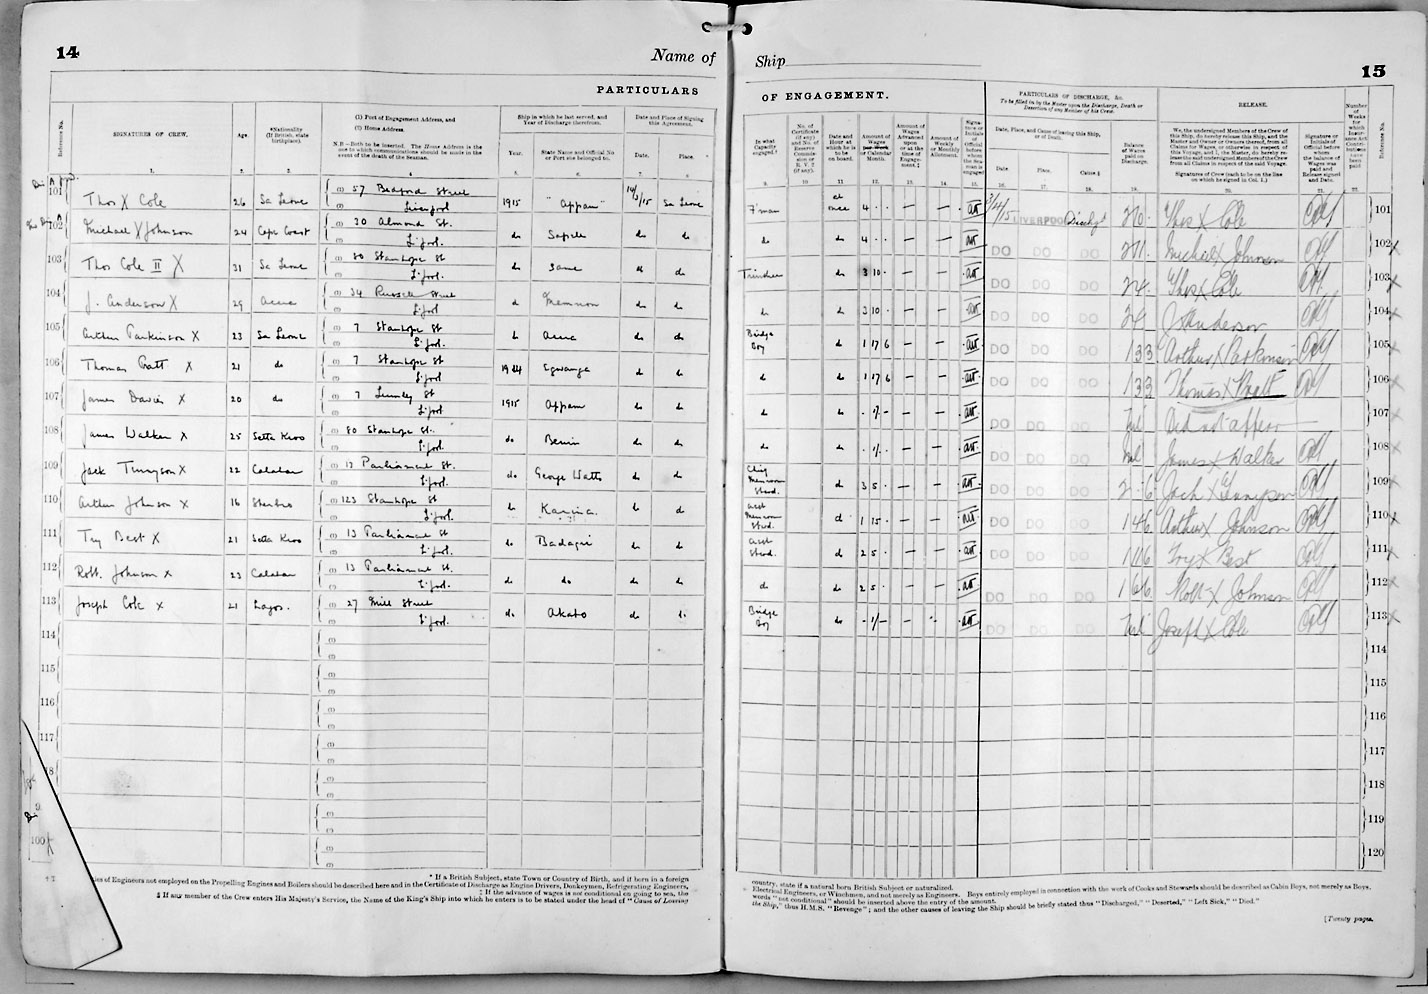 14
Name of
PARTICULARS
Reference No.
SIGNATURES OF CREW.
Age.
*Nationality
(If British, state
birthplace).
(1) Port of Engagement Address, and
(2) Home Address.
N.B.—Both to be inserted. The Home Address is the
one to which communications should be made in the
event of the death of the Seaman.
Ship in which he last served, and
Year of Discharge therefrom.
Year.
State Name and Official No
or Port she belonged to.
Date and Place of Signing
this Agreement.
Date.
Place.
1. 2. 3. 4 5. 6. 7. 8
101 Thos X Cole 26 Sa Leone (1) 57 Bedford Street 1915 "Appam" 14/3/15 Sa Leone
(2) Liverpool
102 Michael X Johnson 24 Cape Coast (1) 20 Almond St. do Sapele do do
(2) L'pool.
103 Thos Cole II X 31 Sa Leone (1) 80 Stanhope St do Same do do
(2) L'pool.
104 J. Anderson X 29 Accra (1) 34 Russell Street do Memnon do do
(2) L'pool
105 Arthur Parkinson X 23 Sa Leone (1) 7 Stanhope St do Accra do do
(2) L'pool.
106 Thomas Pratt X 21 do (1) 7 Stanhope St 1914 Egwanga do do
(2) L'pool
107 James Davies X 20 do (1) 7 Lumley St 1915 Appam do do
(2) L'pool
108 James Walker X 25 Setta Kroo (1) 80 Stanhope St. do Benin do do
(2) L'pool.
109 Jack Tennyson X 22 Calabar (1) 13 Parliament St. do George Watts do do
(2) L'pool.
110 Arthur Johnson X 16 Sherbro (1) 123 Stanhope St do Karina. do do
(2) L'pool.
111 Try Best X 21 Setta Kroo (1) 13 Parliament St do Badagri do do
(2) L'pool.
112 Robt. Johnson X 23 Calabar (1) 13 Parliament St. do do do do
(2) L'pool.
113 Joseph Cole X 21 Lagos. (1) 27 Mill Street do Akabo do do
(2) L'pool.
114 (1)
(2)
115 (1)
(2)
116 (1)
(2)
117 (1)
(2)
(1)
(2)
(1)
(2)
100 (1)
(2)
* If a British Subject, state Town or Country of Birth, and if born in a foreign
of Engineers not employed on the Propelling Engines and Boilers should be described here and in the Certificate of Discharge as Engine Drivers, Donkeymen, Refrigerating Engineers,
‡ If the advance of wages is not conditional on going to sea, the
§ If any member of the Crew enters His Majesty's Service, the Name of the King's Ship into which he enters is to be stated under the head of "Cause of Leaving
Ship
15
OF ENGAGEMENT.
In what
Capacity
engaged.†
No. of
Certificate
(if any)
and No. of
Reserve
Commis-
sion or
R. V. 2
(if any).
Date and
Hour at
which he is
to be
on board.
Amount of
Wages
per Week
or Calendar
Month.
Amount of
Wages
Advanced
upon
or at the
time of
Engage-
ment.‡
Amount of
Weekly
or Monthly
Allotment.
Signa-
ture or
Initials of
Official
before
whom the
Seaman is
engaged
PARTICULARS OF DISCHARGE, &c.
To be filled in by the Master upon the Discharge, Death or
Desertion of any Member of his Crew.
Date, Place, and Cause of leaving this Ship,
or of Death.
Date.
Place.
Cause.§
Balance
of Wages
paid on
Discharge.
RELEASE.
We, the undersigned Members of the Crew of
this Ship, do hereby release this Ship, and the
Master and Owner or Owners thereof, from all
Claims for Wages, or otherwise in respect of
this Voyage, and I, the Master, do hereby re-
lease the said undersigned Members of the Crew
from all Claims in respect of the said Voyage.
Signatures of Crew (each to be on the line
on which he signed in Col. 1.)
Signature or
Initials of
Official before
whom
the balance
of Wages was
paid and
Release signed
and Date.
Number
of
Weeks
for
which
Insur-
ance Act
Contri-
butions
have
been
paid
Reference No.
9. 10 11 12. 13. 14. 15. 16. 17. 18. 19. 20. 21. 22.
F'man at once 4 LIVERPOOL Dischgd Thos X Cole 101
do do 4 DO DO DO Michael X Johnson 102
Trimmer do 3 10 DO DO DO 24 Thos X Cole 103
do do 3 10 DO DO DO 24 J Anderson 104
Bridge Boy do 1 17 6 DO DO DO 1 3 3 Arthur X Parkinson 105
do do 1 17 6 DO DO DO 1 3 3 Thomas X Pratt 106
do do 1/- DO DO DO Nil Did not appear 107
do do 1/- DO DO DO Nil James X Walker 108
Chief Memroom Stwd. do 3 5 DO DO DO Jack X Tennyson 109
Asst Memroom Stwd. do 1 15 DO DO DO 1 4 6 Arthur X Johnson 110
Asst Stwd. do 2 5 DO DO DO Try X Best 111
do do 2 5 DO DO DO Robt X Johnson 112
Bridge Boy do 1/- DO DO DO Nil Joseph X Cole 113
114
115
116
117
118
119
120
country, state if a natural born British Subject or naturalized.
Electrical Engineers, or Winchmen, and not merely as Engineers. Boys entirely employed in connection with the work of Cooks and Stewards should be described as Cabin Boys, not merely as Boys.
words "not conditional" should be inserted above the entry of the amount.
the Ship," thus H.M.S. "Revenge"; and the other causes of leaving the Ship should be briefly stated thus "Discharged," "Deserted," "Left Sick," "Died."
[Twenty pages.